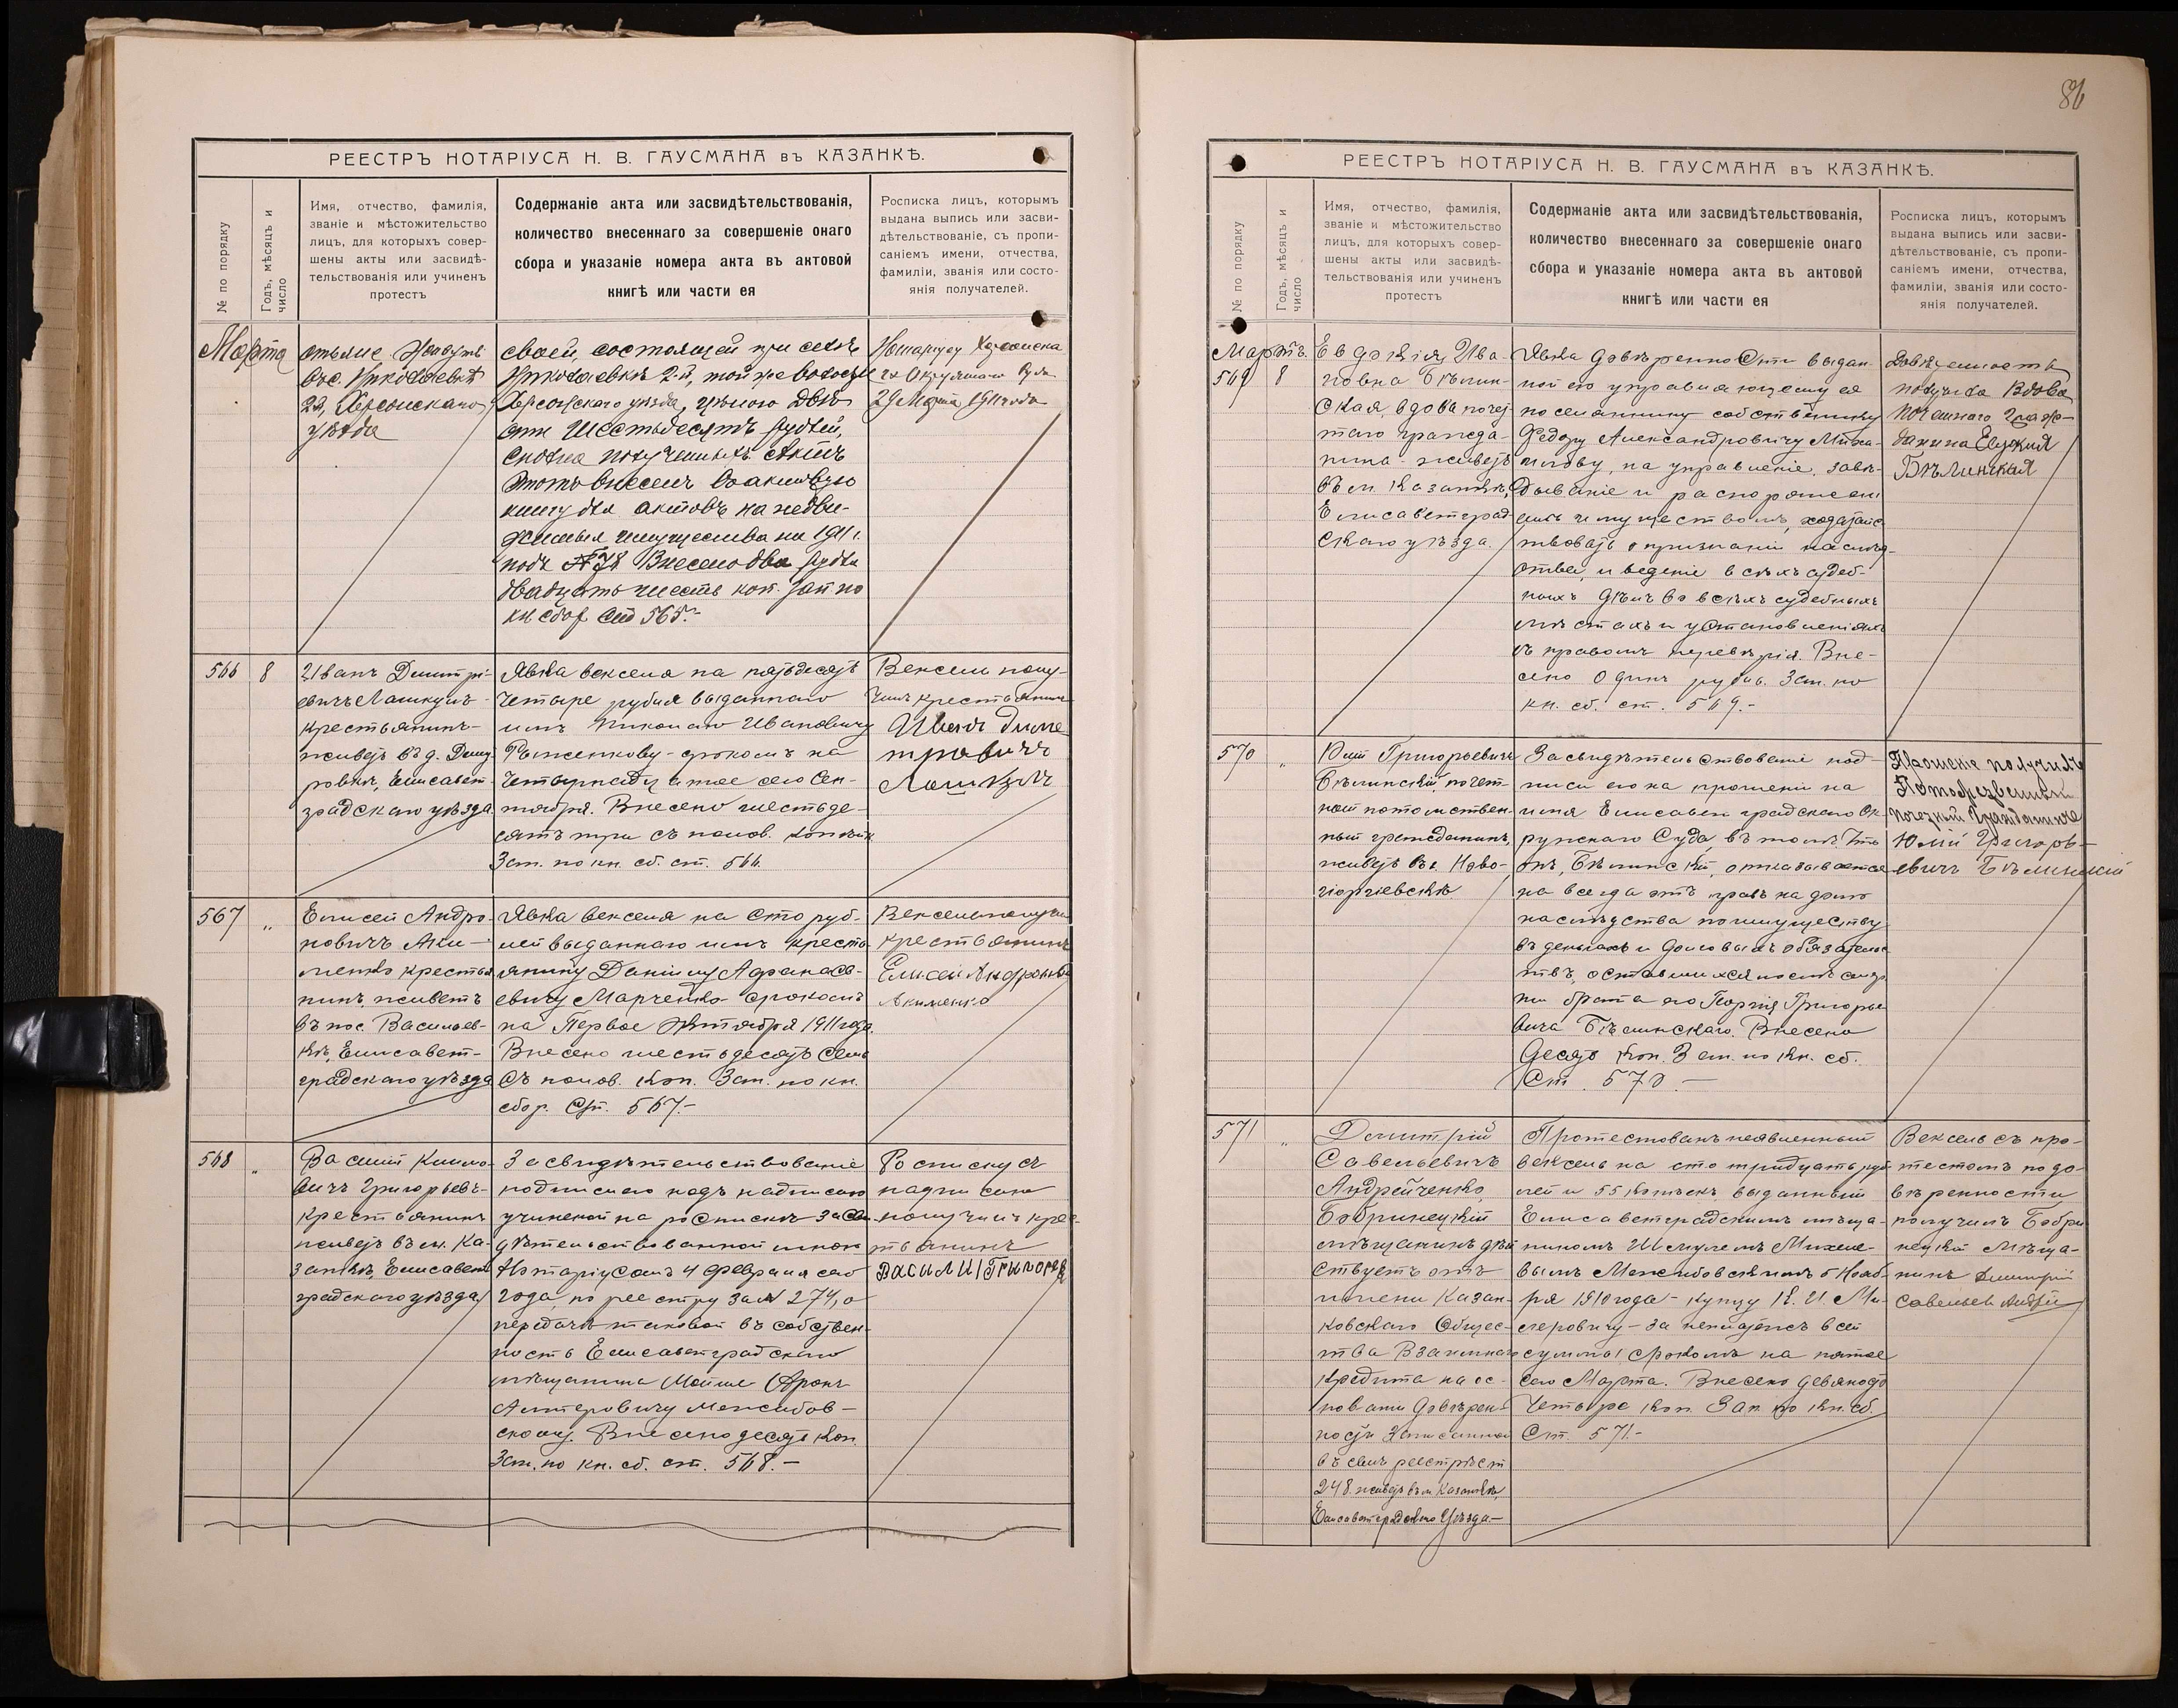 86
РЕЕСТРЪ НОТАРІУСА Н. В. ГАУСМАНА въ КАЗАНКѢ.
№ по порядку
Годъ, мѣсяцъ и
число
Имя, отчество, фамилія,
званіе и мѣстожительство
лицъ, для которыхъ совер-
шены акты или засвидѣ-
тельствованія или учиненъ
протестъ
Содержаніе акта или засвидѣтельствованія,
количество внесеннаго за совершеніе онаго
сбора и указаніе номера акта въ актовой
книгѣ или части ея
Росписка лицъ, которымъ
выдана выпись или засви-
дѣтельствованіе, съ пропи-
саніемъ имени, отчества,
фамиліи, званія или состо-
янія получателей.
Марта
вѣс. Николаевкѣ
2й, Херсонскаго
уѣзда
своей, состоящей при селѣ
Николаевкѣ 2-й, той же волости
Херсонскаго уѣзда, цѣною двѣ
сти шестьдесятъ рублей,
сполна полученныхъ. Актъ
этотъ внесенъ въ актовую
книгу для актовъ на недви-
жимыя имущества на 1911 г.
подъ № 78 Внесено два рубля
двадцать шесть коп. зап. по
кн сбор ст 565.-
Нотаріусу Херсонска
го Окружнаго Суда
29 Марта 1911 года
566
8
Иванъ Димитрі-
евичъ Лашкулъ -
крестьянинъ -
живетъ въ д. Дми
ровкѣ, Елисавет-
градскаго уѣзда.
Явка векселя на пятьдесятъ
четыре рубля выданнаго
имъ Николаю Ивановичу
Рыженкову - срокомъ на
четырнадцатое сего Сен-
тября. Внесено шестьде-
сятъ три съ полов. копѣйк
Зап. по кн. сб. ст. 566
Вексель полу-
чилъ крестьянинъ
Иванъ Диме
тровичъ
Лашкулъ
567
„
Елисей Андро-
новичъ Аки-
менко крестья
нинъ, живетъ
въ пос. Васильев-
кѣ, Елисавет-
градскаго уѣзда
Явка векселя на сто руб-
лей выданнаго имъ кресть
янину Даніилу Афанась-
евичу Марченко - срокомъ
на Первое Октября 1911 года.
Внесено шестьдесятъ семь
съ полов. коп. Зап. по кн.
сбор. ст. 567.-
Вексель получи
крестьянинъ
Елисей Андроновъ
Акименко
568
„
Василій Климо-
вичъ Григорьевъ -
крестьянинъ
живетъ въ м. Ка-
занкѣ, Елисавет
градскаго уѣзда
Засвидѣтельствованіе
подписи его подъ надписью
учиненой на роспискѣ засви-
дѣтельствованной мною
Нотаріусомъ 4 февраля сего
года, по реестру за № 274, о
передачѣ таковой въ собствен-
ность Елисаветградскаго
мѣщанина Мойше Аронъ
Межибов-
скому. Внесено десять коп.
Зап. по кн. сб. ст. 568. -
Росписку съ
надписью
получилъ крес-
тьянинъ
Василий Григорев
РЕЕСТРЪ НОТАРІУСА Н. В. ГАУСМАНА въ КАЗАНКѢ.
№ по порядку
Годъ, мѣсяцъ и
число
Имя, отчество, фамилія,
званіе и мѣстожительство
лицъ, для которыхъ совер-
шены акты или засвидѣ-
тельствованія или учиненъ
протестъ
Содержаніе акта или засвидѣтельствованія,
количество внесеннаго за совершеніе онаго
сбора и указаніе номера акта въ актовой
книгѣ или части ея
Росписка лицъ, которымъ
выдана выпись или засви-
дѣтельствованіе, съ пропи-
саніемъ имени, отчества,
фамиліи, званія или состо-
янія получателей.
Мартъ.
569
8
Евдокія Ива-
новна Бѣлин-
ская, вдова почет
таго гражда-
нина - живетъ
въ м. Казанкѣ,
Елисаветград-
скаго уѣзда.
Явка довѣренности выдан-
ной ею управляющему ея
Федору Александровичу Миха-
илову, на управленіе, завѣ-
дываніе и распоряжен
имуществомъ, ходатайс
твовать о признаніи наслѣд-
ства, и веденіе всѣхъ судеб-
ныхъ дѣлъ во всѣхъ судебныхъ
мѣстахъ и установленіяхъ
съ правомъ передовѣрія. Вне-
сено одинъ рубль. Зап. по
кн. сб. ст. 569.-
Довѣренность
получила Вдова
почотнаго Граж-
данина Евдокия
Бѣлинская
570
„
Юлій Григорьевичъ
Бѣлинскій почет-
ный потомствен-
ный гражданинъ,
живетъ въ г. Ново-
георгіевскѣ
Засвидѣтельствованіе под-
писи его на прошеніи на
имя Елисаветградскаго Ок-
ружнаго Суда, въ томъ что
онъ, Бѣлинскій, отказывается
на всегда отъ правъ на долю
наслѣдства по имуществу
въ деньгахъ и долговыхъ обязательс
твъ, оставшихся послѣ смер
ти брата его Георгія Григорье
вича Бѣлинскаго. Внесено
десять коп. Зап. по кн. сб.
Ст. 570. -
Прошеніе получилъ
почетный Гражданинъ
Юлій Григорь-
евичъ Бѣлинскій
571
„
Димитрій
Савельевичъ
Андрейченко,
Бобринецкій
мѣщанинъ дѣй
ствуетъ отъ
имени Казан-
ковскаго Общес-
тва Взаимнаго
кредита на ос-
нованіи довѣрен-
ности записанной
въ семъ реестрѣ ст
248. живетъ въ м Казанкѣ,
Елисаветградскаго Уѣзда.-
Протестованъ неявленный
вексель на сто тридцать руб-
лей и 55 копѣекъ, выданный
Елисаветградскимъ мѣща-
ниномъ Шмулемъ Михеле-
вымъ Межибовскимъ 5 Нояб-
ря 1910 года - купцу К. И. Ми-
слеровичу - за неплатежъ всей
суммы, срокомъ на пятое
сего Марта. Внесено девяносто
четыре коп. Зап по кн. сб.
Ст. 571.-
Вексель съ про-
тестомъ по до-
вѣренности
получилъ Бобри
нецкій мѣща-
нинъ Димитрій
Савельевъ Андрей